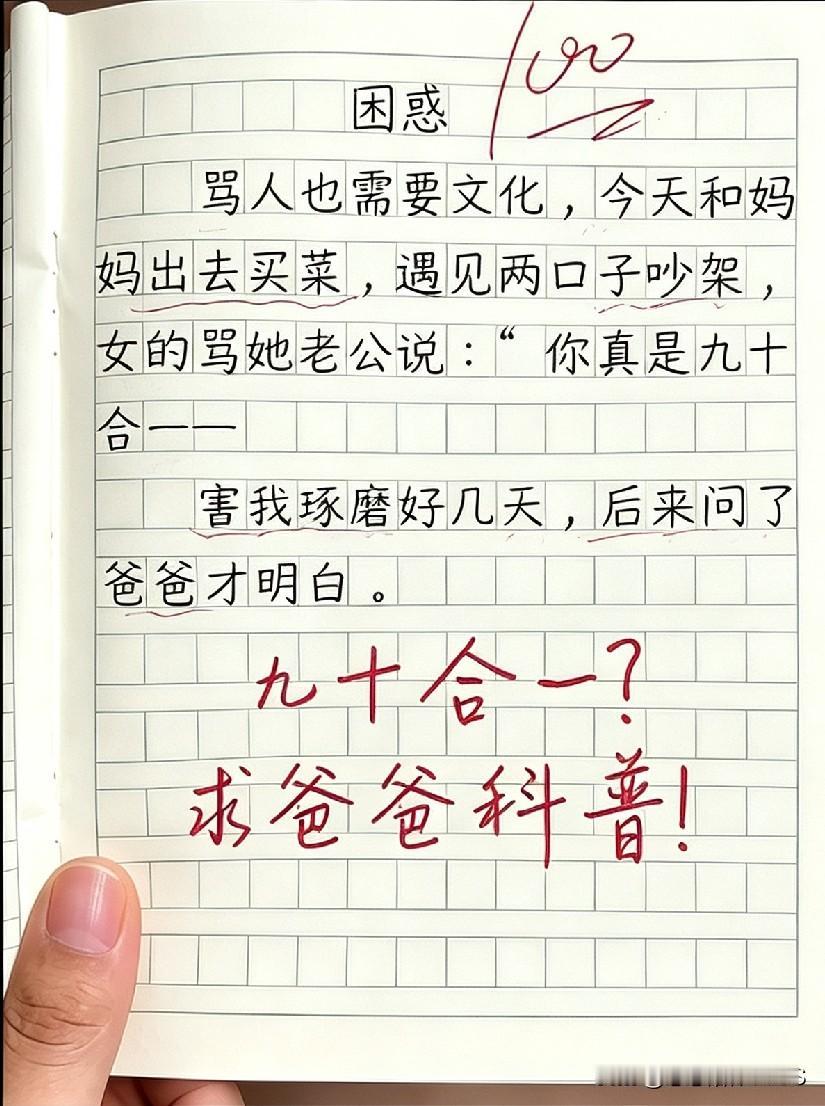 100
困惑
骂人也需要文化，今天和妈
妈出去买菜，遇见两口子吵架，
女的骂她老公说：“你真是九十
合一——
害我琢磨好几天，后来问了
爸爸才明白。
九十合一？
求爸爸科普！